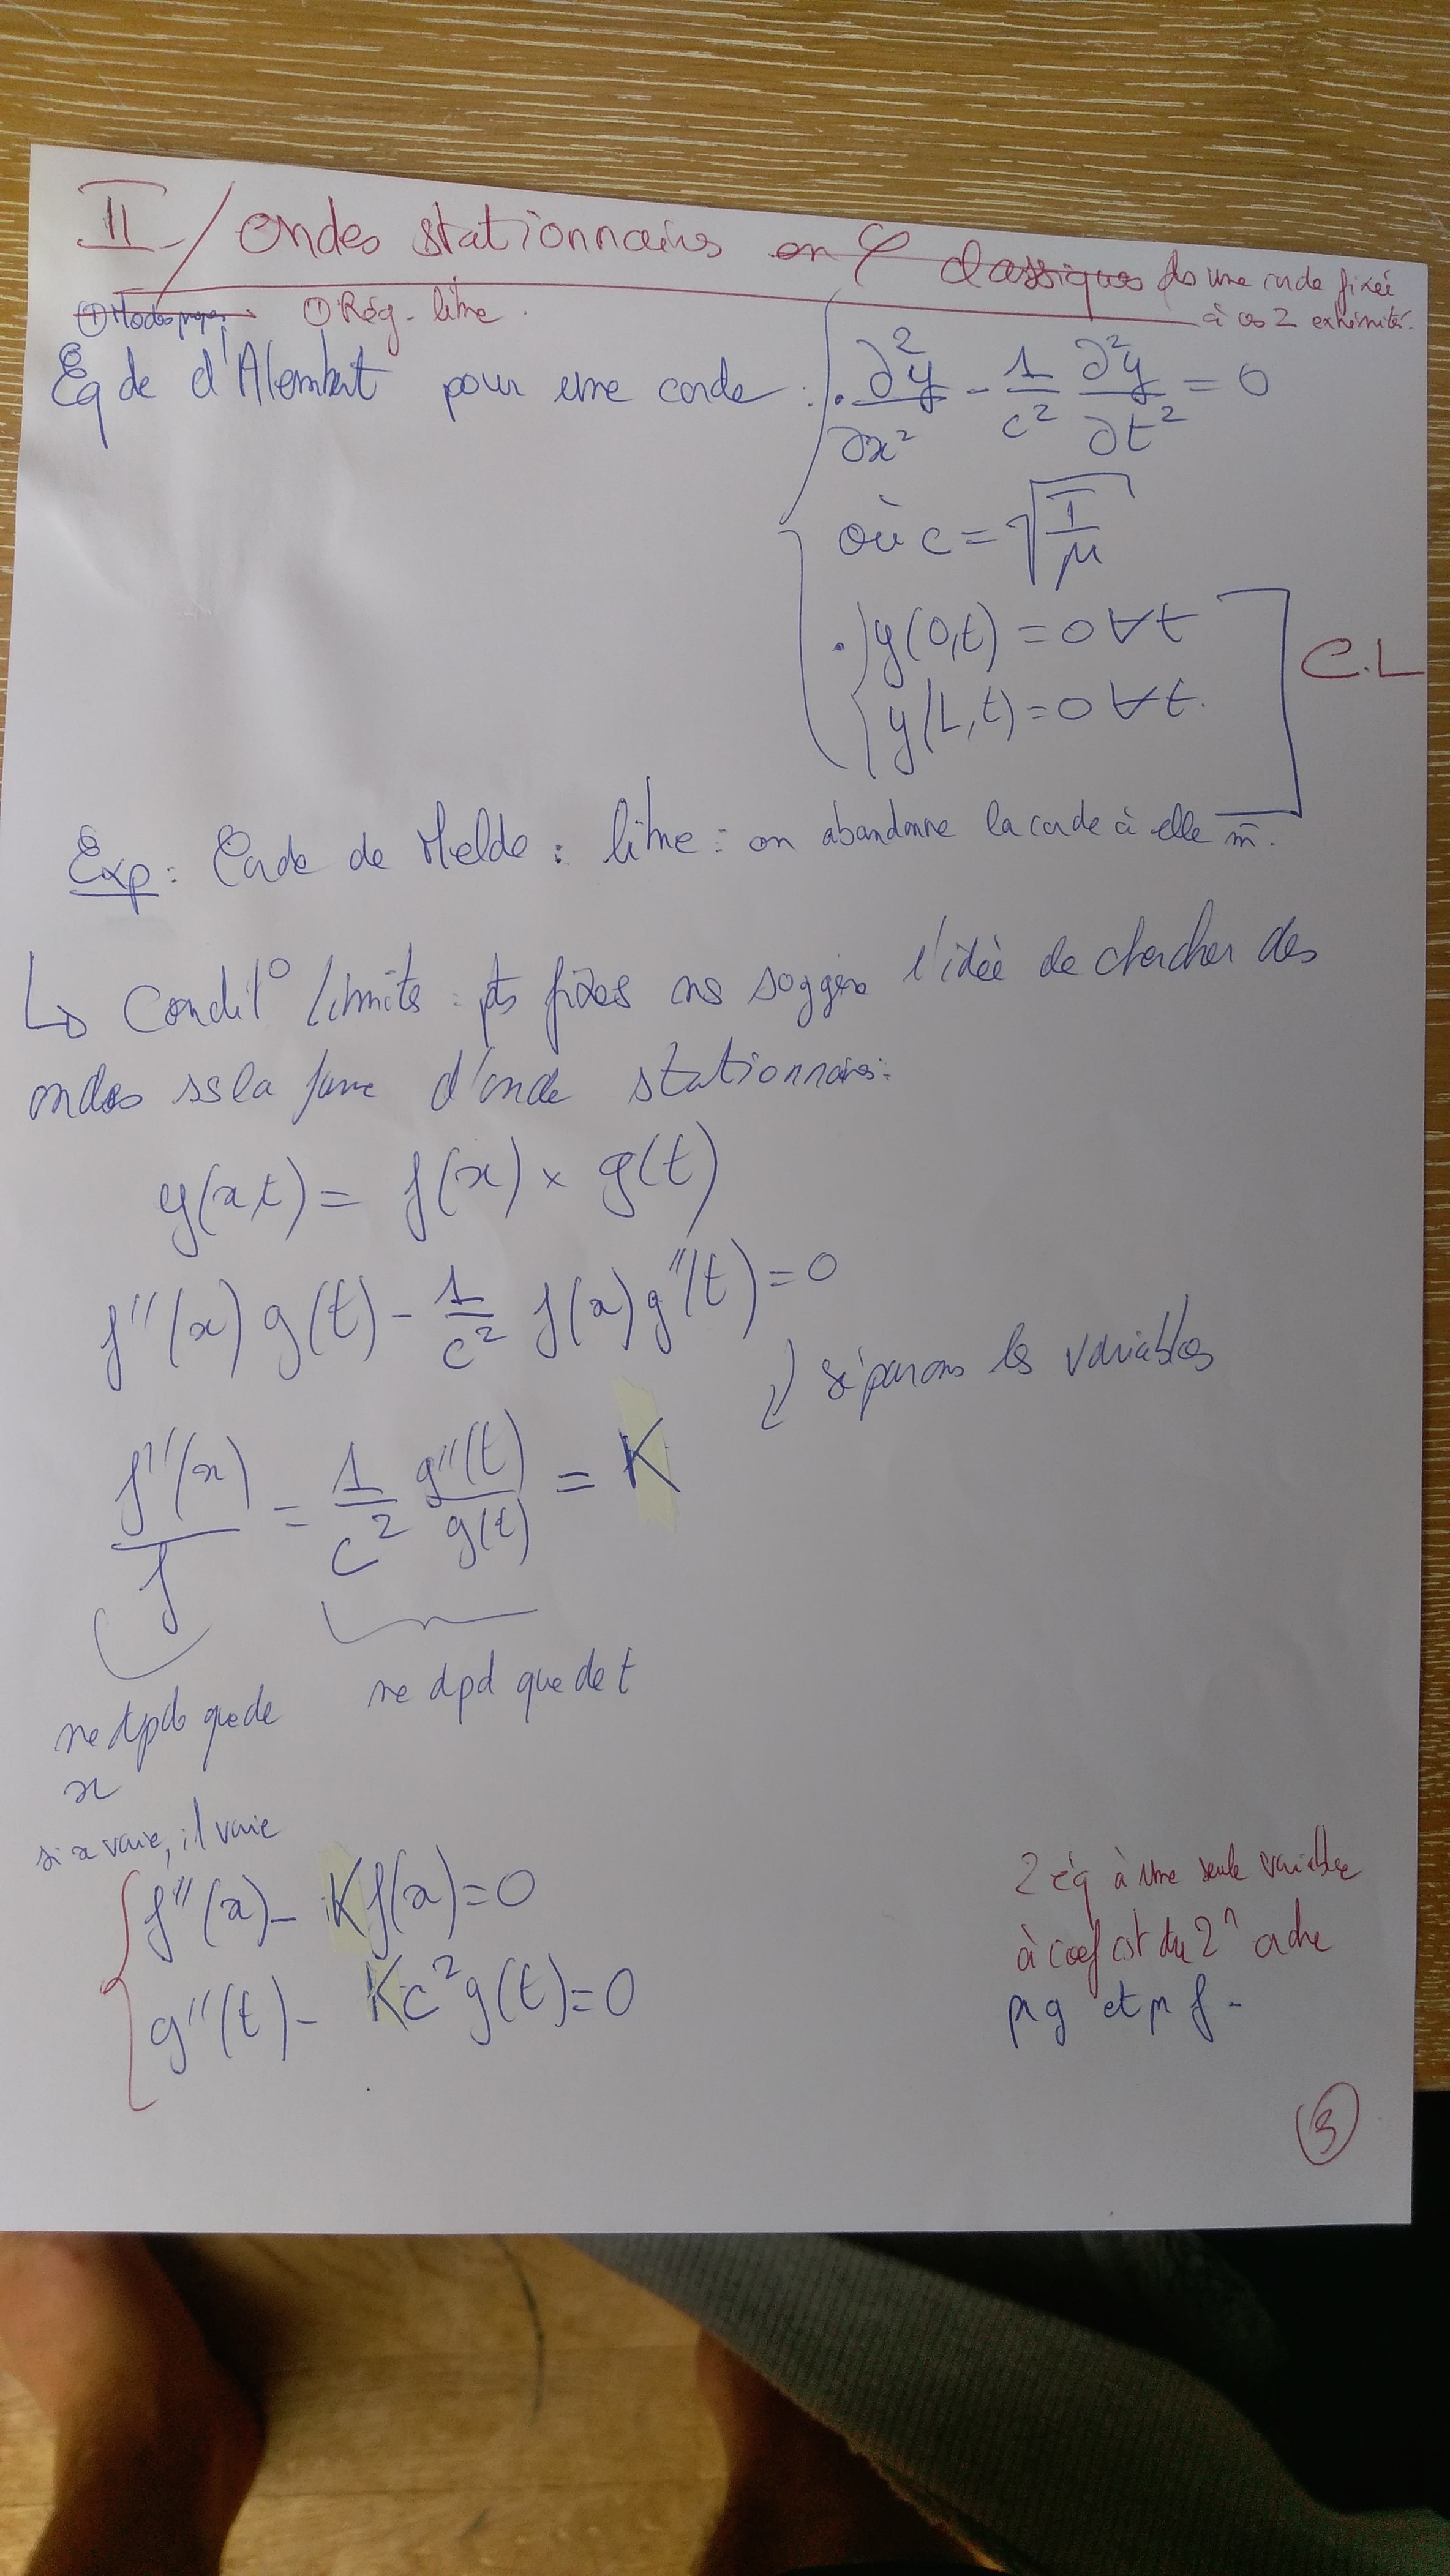 II / Ondes stationnaires en φ classiques ds une corde fixée
à ces 2 extrémités.
① Modes propres ① Rég. libre.
Eq de d'Alembert pour une corde : ∂²y/∂x² - 1/c² ∂²y/∂t² = 0
où c = √(T/μ)
y(0,t) = 0 ∀t
y(L,t) = 0 ∀t.
C.L
Exp : Corde de Melde : libre : on abandonne la corde à elle m̄.
↳ Condit° limite : pts fixes ns suggère l'idée de chercher des
ondes ss la forme d'onde stationnaires :
y(x,t) = f(x) × g(t)
f''(x) g(t) - 1/c² f(x) g''(t) = 0
séparons les variables
f''(x)/f = 1/c² g''(t)/g(t) = K
ne dpd que de t
ne dpd que de
x
si x varie, il varie
f''(x) - K f(x) = 0
g''(t) - K c² g(t) = 0
2 éq à une seule variable
à coef cst du 2ⁿ ordre
pr g et pr f -
③